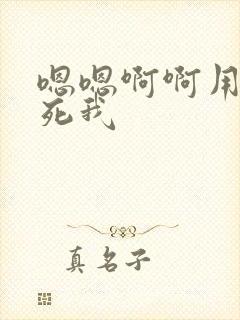 嗯嗯啊啊用
死我
真名子